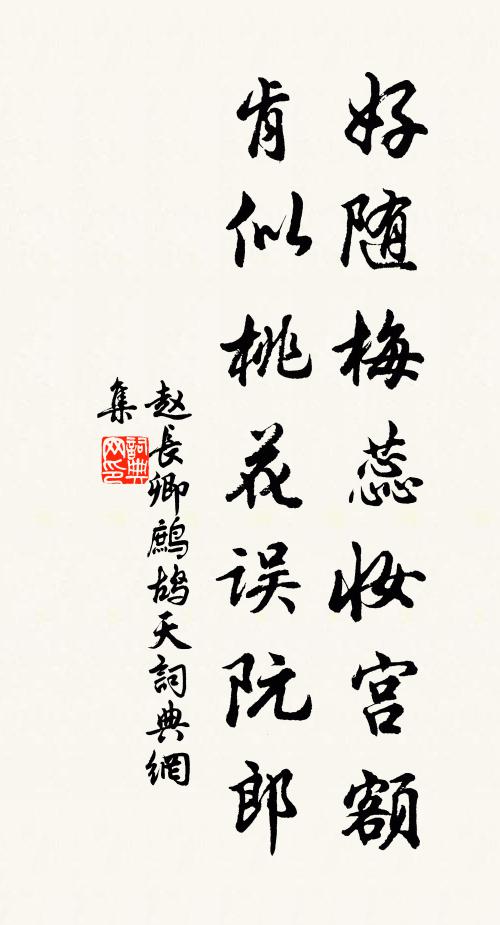 好随梅蕊妆宫额
肯似桃花误阮郎
赵長卿鹧鸪天詞典網
集
詞典网印